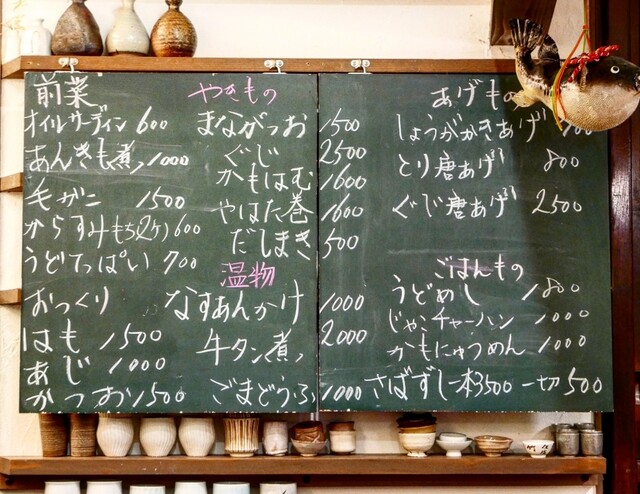 前菜
オイルサーディン 600
あんきも煮 1000
毛がに 1500
からすみもち(2ケ) 600
うどてっぱい 700
おつくり
はも 1500
あじ 1000
かつお 1500
やきもの
まながつお 1500
ぐじ 2500
かもはむ 1600
やはた巻 1600
だしまき 500
温物
なすあんかけ 1000
牛タン煮 2000
ごまどうふ 1000
あげもの
しょうがかきあげ
とり唐あげ 800
ぐじ唐あげ 2500
ごはんもの
うどめし 800
じゃこチャーハン 1000
かもにゅうめん 1000
さばずし 一本3500 一切500